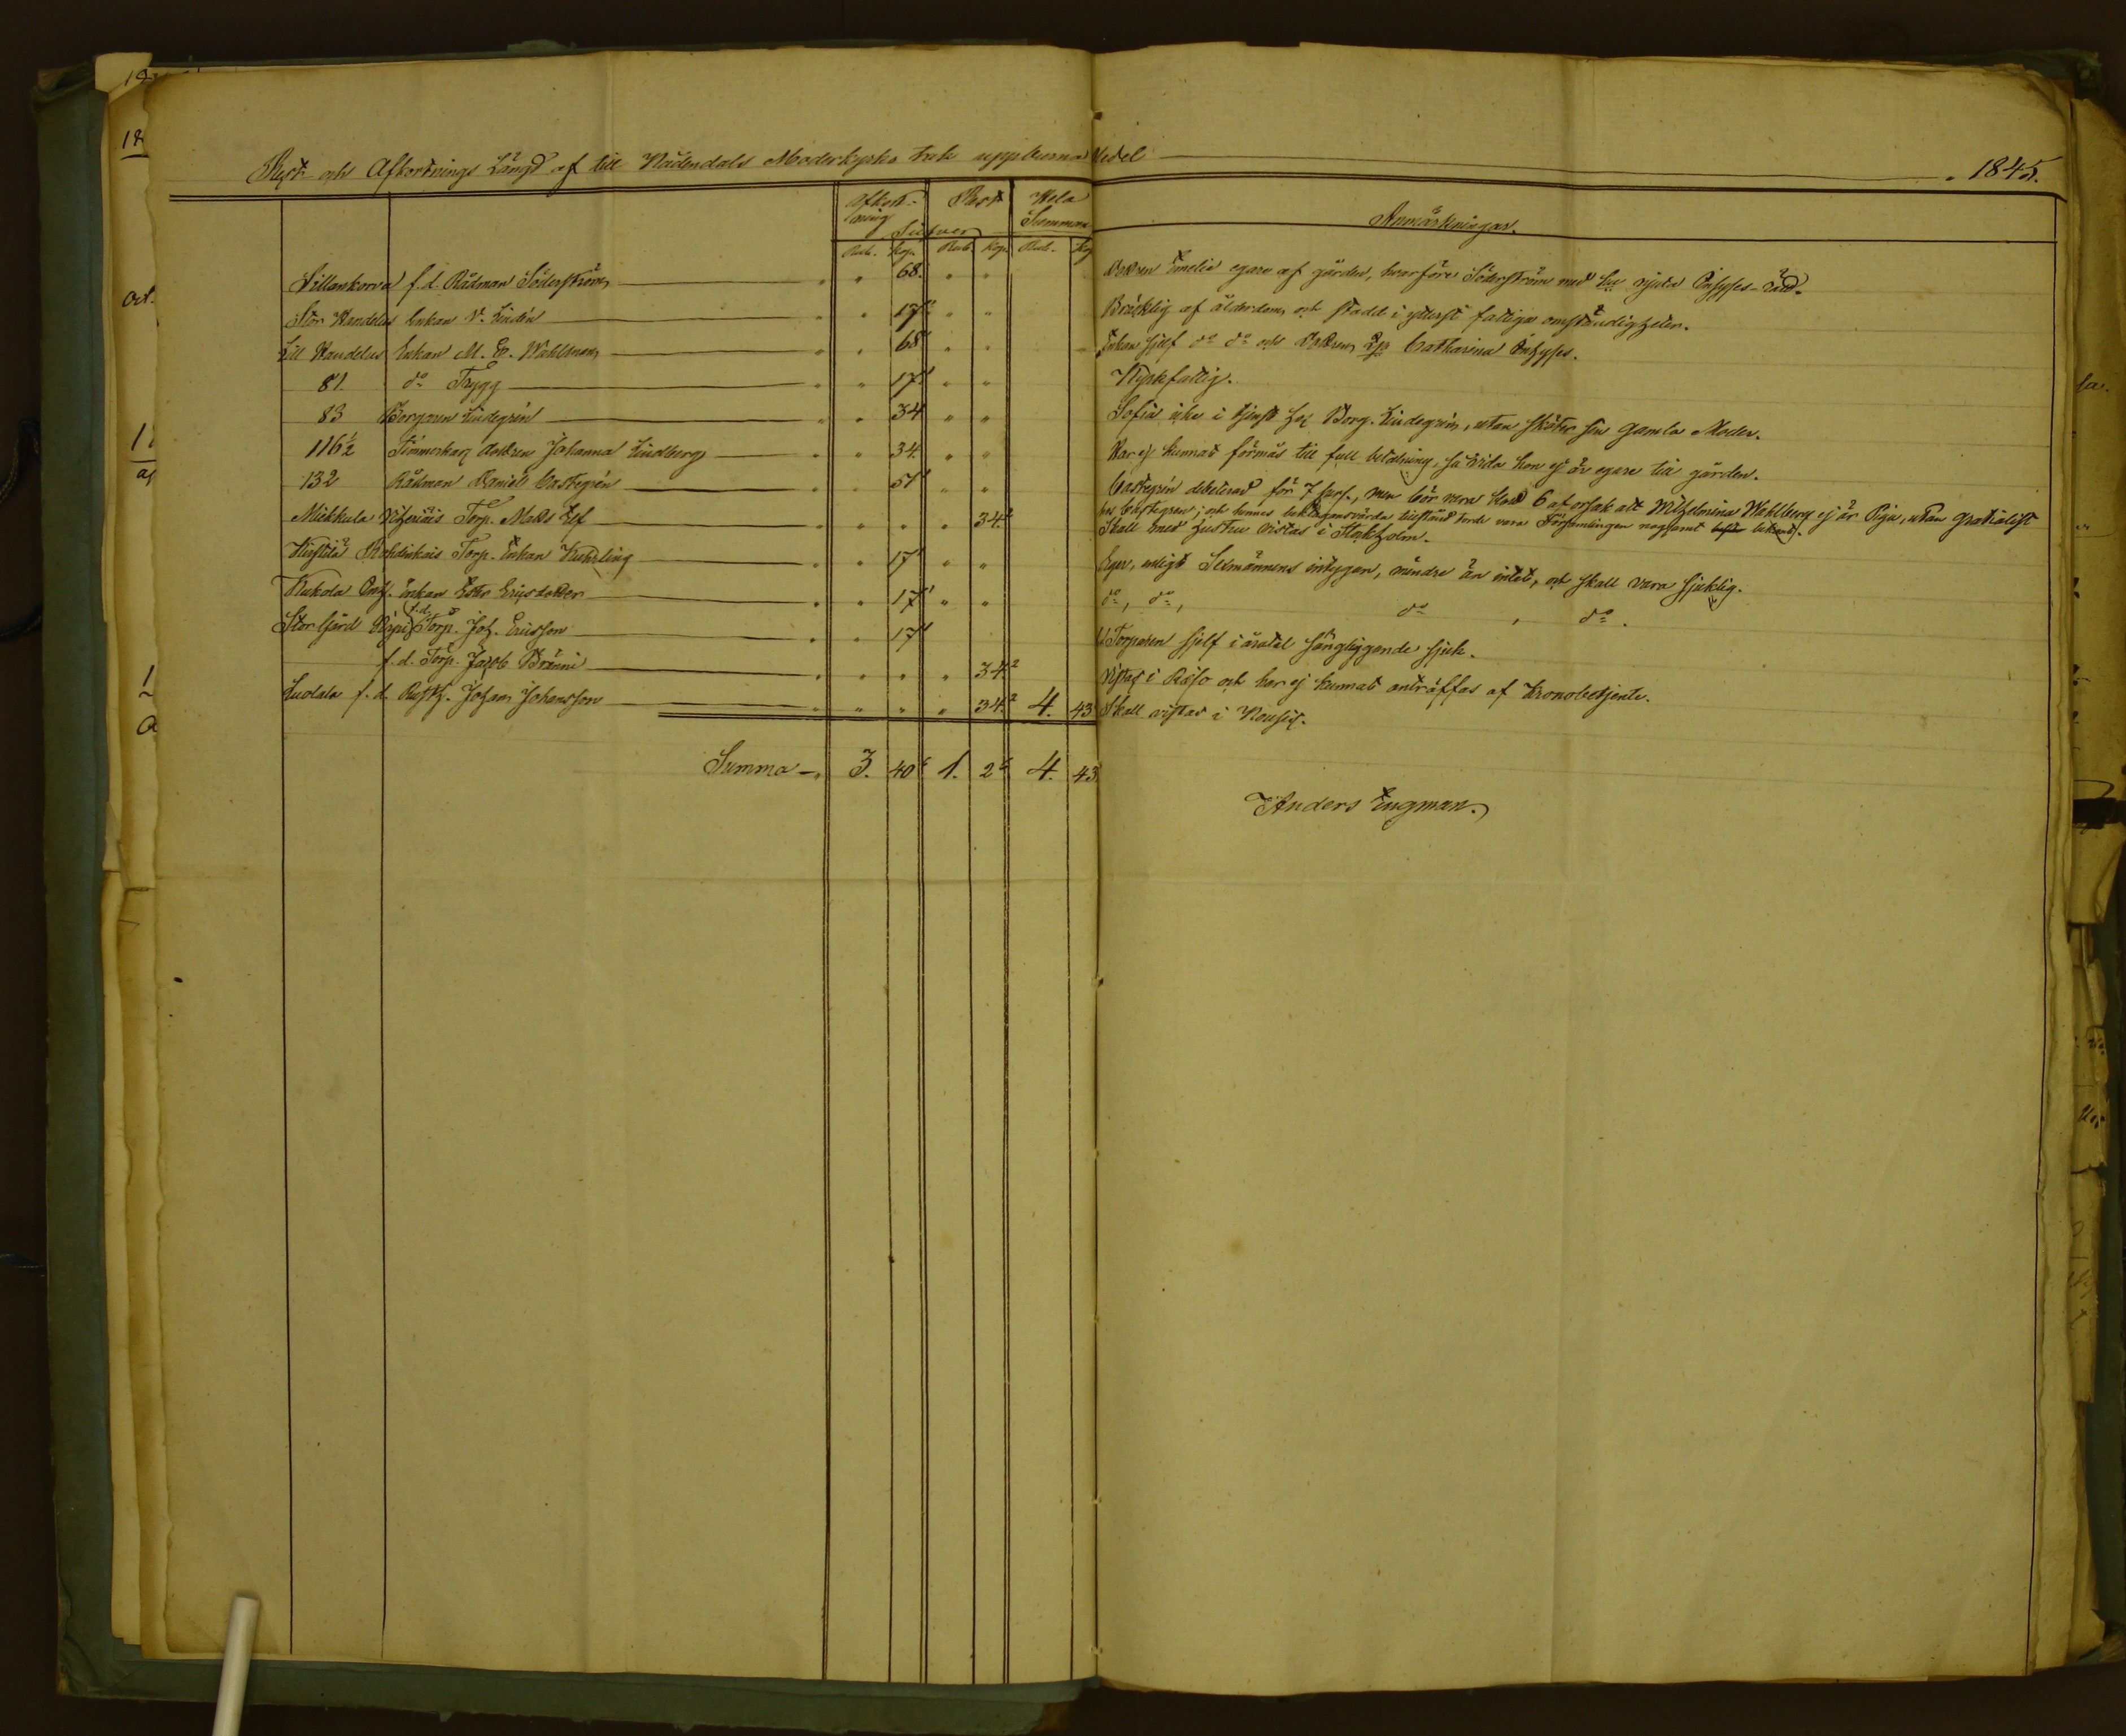 Rest- och Afkortnings Längd af till Nådendals Moderkyrka tak uppburna Medel 1845.
Afkort- Rest Hela
ning Silfver Summan Anmärkningar.
Rub. Kop. Rub. Kop. Rub. Kop
Sillankorva f.d. Rådman Söderström " 68. " " Dottren Emelie egare af gården, hvarföre Söderström med njuta Inhyses-rätt.
Stor Wandelus Enkan V. Lindén " 17 " " Bräcklig af ålderdom, och stadd i ytterst fattiga omständigheter.
Lill Wandelus Enkan M. E. Wahlman " 68 " " Enkan sjelf do do och Dottren Catharina Inhyses.
81. do Trygg " 17 " " Kyrkfattig.
83 Borgaren Lindegrén " 34 " " Sofia icke i tjenst hos Borg. Lindegrén, utan sköter sin gamla Moder.
116½ Timmerkarls dottren Johanna Lindberg " 34. " " Har ej kunnat förmås till full betalning, så vida hon ej är egare till gården.
132 Rådman Daniel Castegrén " 51 " " Castegrén debiterad för 7 pers., men bör vara blott 6 af orsak att Wilhelmina Wahlberg ej är Piga, utan gratialist
hos Castegren; och hennes beklagansvärda tillstånd torde vara Församlingen nogsamt bekant.
Miekkula Torp. Matts Elf " " " 34.2 Skall med hustru vistas i Stockholm.
Torp. Enkan " 17 " " Eger, enligt Sexmännens intygan, mindre än intet, och skall vara sjuklig.
Kukola Inh. enkan Ericsdotter " 17 " " do, do, do, do.
Stor Gård f.d. Torp. Joh. Ericsson " 17 Torparen sjelf i åratal sängliggande sjuk.
f.d. Torp. Jacob Bränni " " " 34.2 Vistas i Rasko och har ej kunnat anträffas af Kronobetjente.
Luolala f.d. Rusth. Johan Johansson " " " 34.2 4. 43 Skall vistas i Nousis.
Summa 3. 40 1. 2 4. 43
Anders Engman.